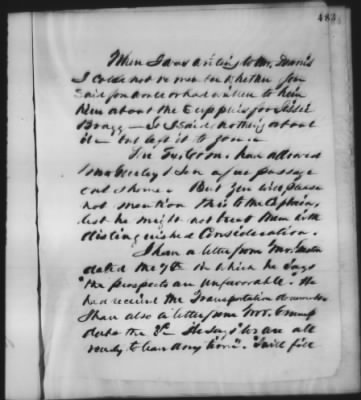 483
When I was writing to Mr.
I could not remember whether you
said you or had written to him
him about the supplies for
Bragg — So I said nothing about
it — but left it to you —
The Ex. Com. had allowed
& Son a free passage
out & home — But you will please
not mention this to the Captain,
lest he might not treat them with
distinguished consideration.
I have a letter from Mr.
dated the 7th in which he says
"the prospects are unfavorable". He
had received the transportation
I have also a letter from Mr.
date the He says "we are all
ready to leave any time".